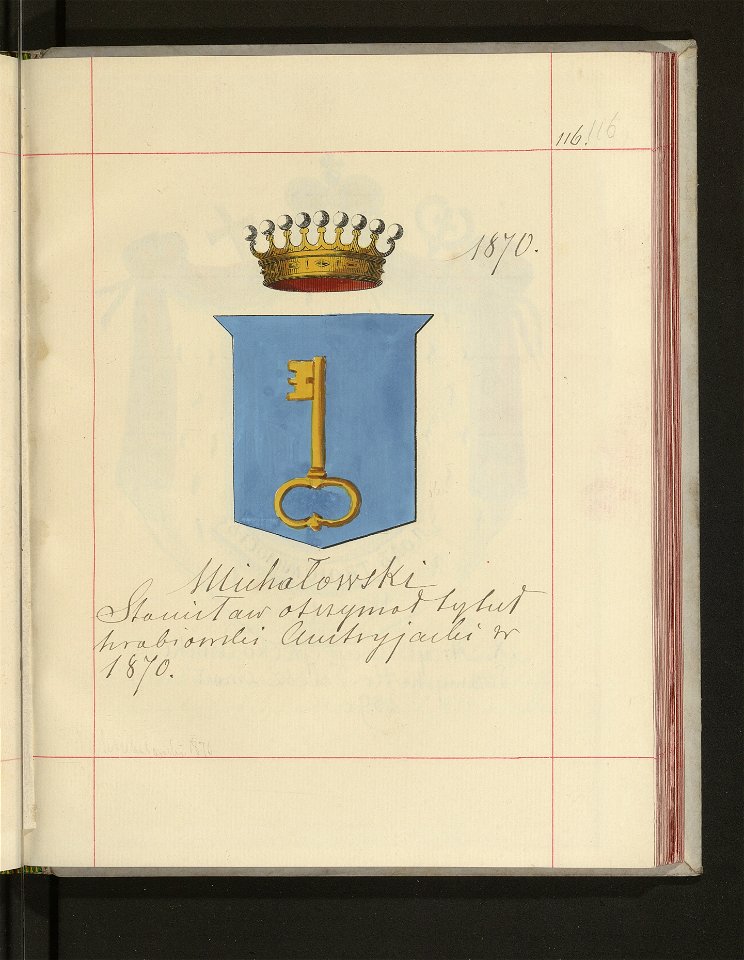 116. 116
1870.
Michałowski
Stanisław otrzymał tytuł
hrabiowski Austryjacki w
1870.